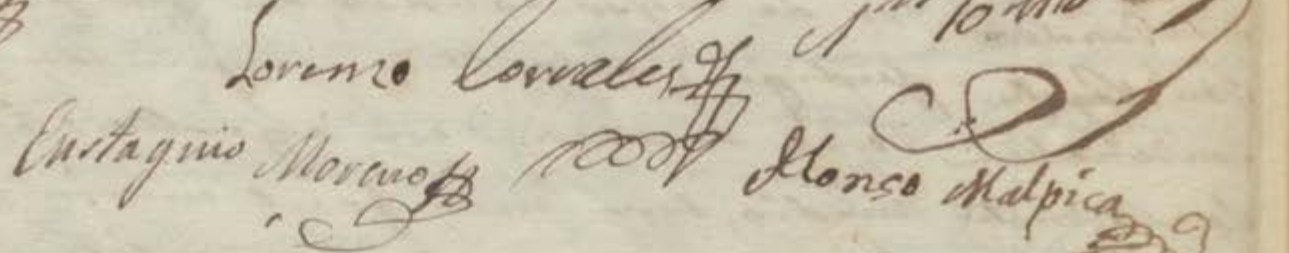 Lorenzo Corrales
Eustaquio Moreno Alonso Malpica